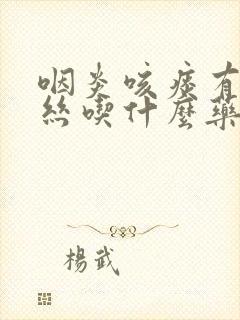 咽炎咳痰有
絲喫什麼藥
楊武